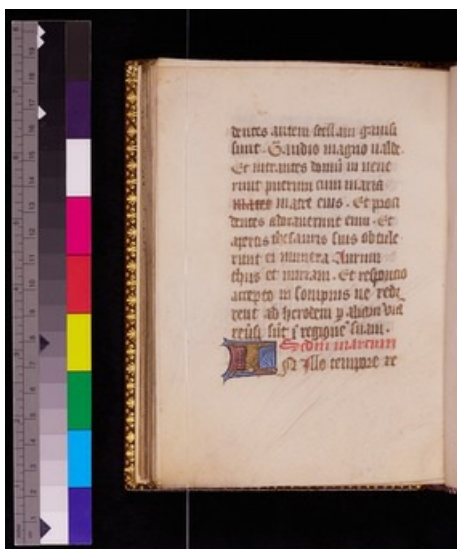 dentes autem stellam gauisi
sunt. Gaudio magno ualde.
Et intrantes domū in uene
runt puerum cum maria
matre matrē eius. Et proci
dentes adorauerunt eum. Et
apertis thesauris suis obtule
runt ei munera Aurum
thus et mirram. Et responso
accepto in sompnis ne redi
rent ad herodem ꝑ aliam uiā
reūsi sūt ī regionē suam.
Secdm marcum
IN illo tempore re